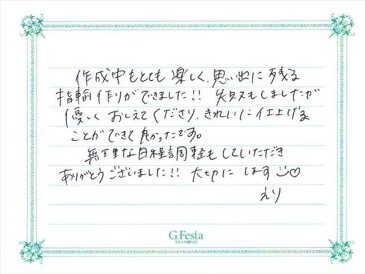 作成中もとても楽しく、思い出に残る
指輪作りができました!! 失敗もしましたが
優しくおしえてくださり、きれいに仕上げる
ことができて良かったです。
無理な日程調整もしていただき
ありがとうございました!! 大切にします
えり
G.Festa